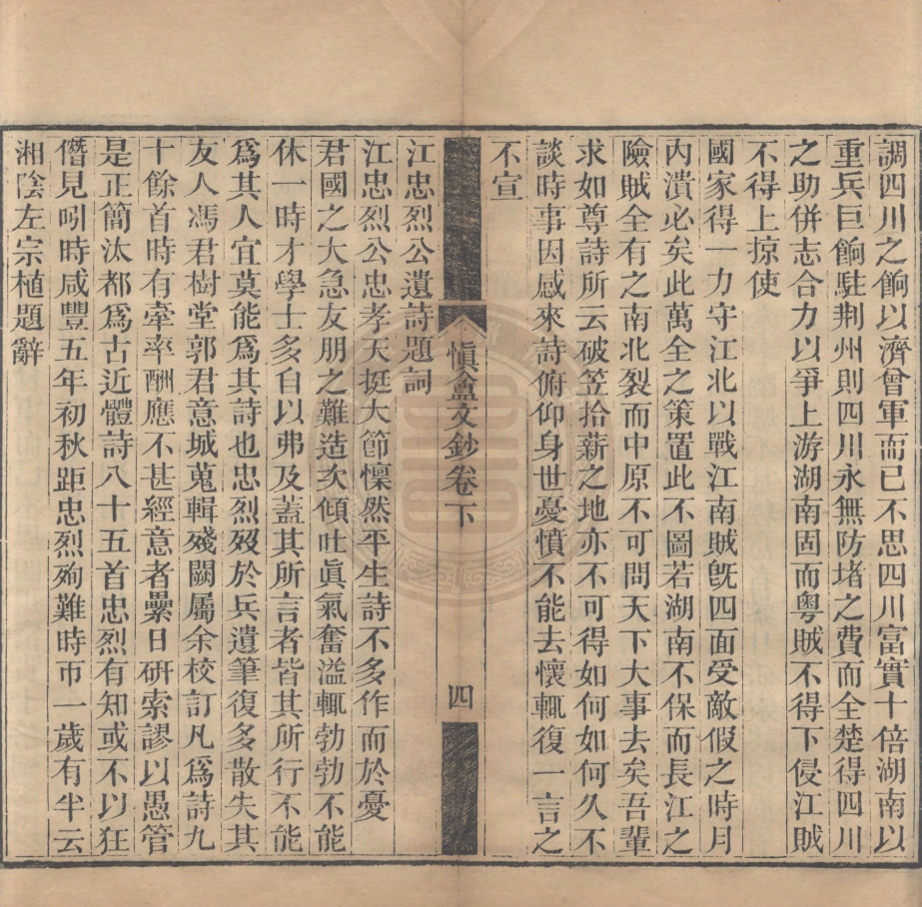 調四川之餉以濟曾軍而已不思四川富實十倍湖南以
重兵巨餉駐荆州則四川永無防堵之費而全楚得四川
之助併志合力以爭上游湖南固而粤賊不得下侵江賊
不得上掠使
國家得一力守江北以戰江南賊旣四面受敵假之時月
内潰必矣此萬全之策置此不圖若湖南不保而長江之
險賊全有之南北裂而中原不可問天下大事去矣吾輩
求如尊詩所云破笠拾薪之地亦不可得如何如何久不
談時事因感來詩俯仰身世憂憤不能去懷輒復一言之
不宣
愼盦文鈔卷下 四
江忠烈公遺詩題詞
江忠烈公忠孝天挺大節懍然平生詩不多作而於憂
君國之大急友朋之難造次傾吐眞氣奮溢輒勃勃不能
休一時才學士多自以弗及蓋其所言者皆其所行不能
爲其人宜莫能爲其詩也忠烈歿於兵遺筆復多散失其
友人馮君樹堂郭君意城蒐輯殘闕屬余校訂凡爲詩九
十餘首時有牽率酬應不甚經意者纍日硏索謬以愚管
是正簡汰都爲古近體詩八十五首忠烈有知或不以狂
僭見吲時咸豐五年初秋距忠烈殉難時帀一歲有半云
湘陰左宗植題辭